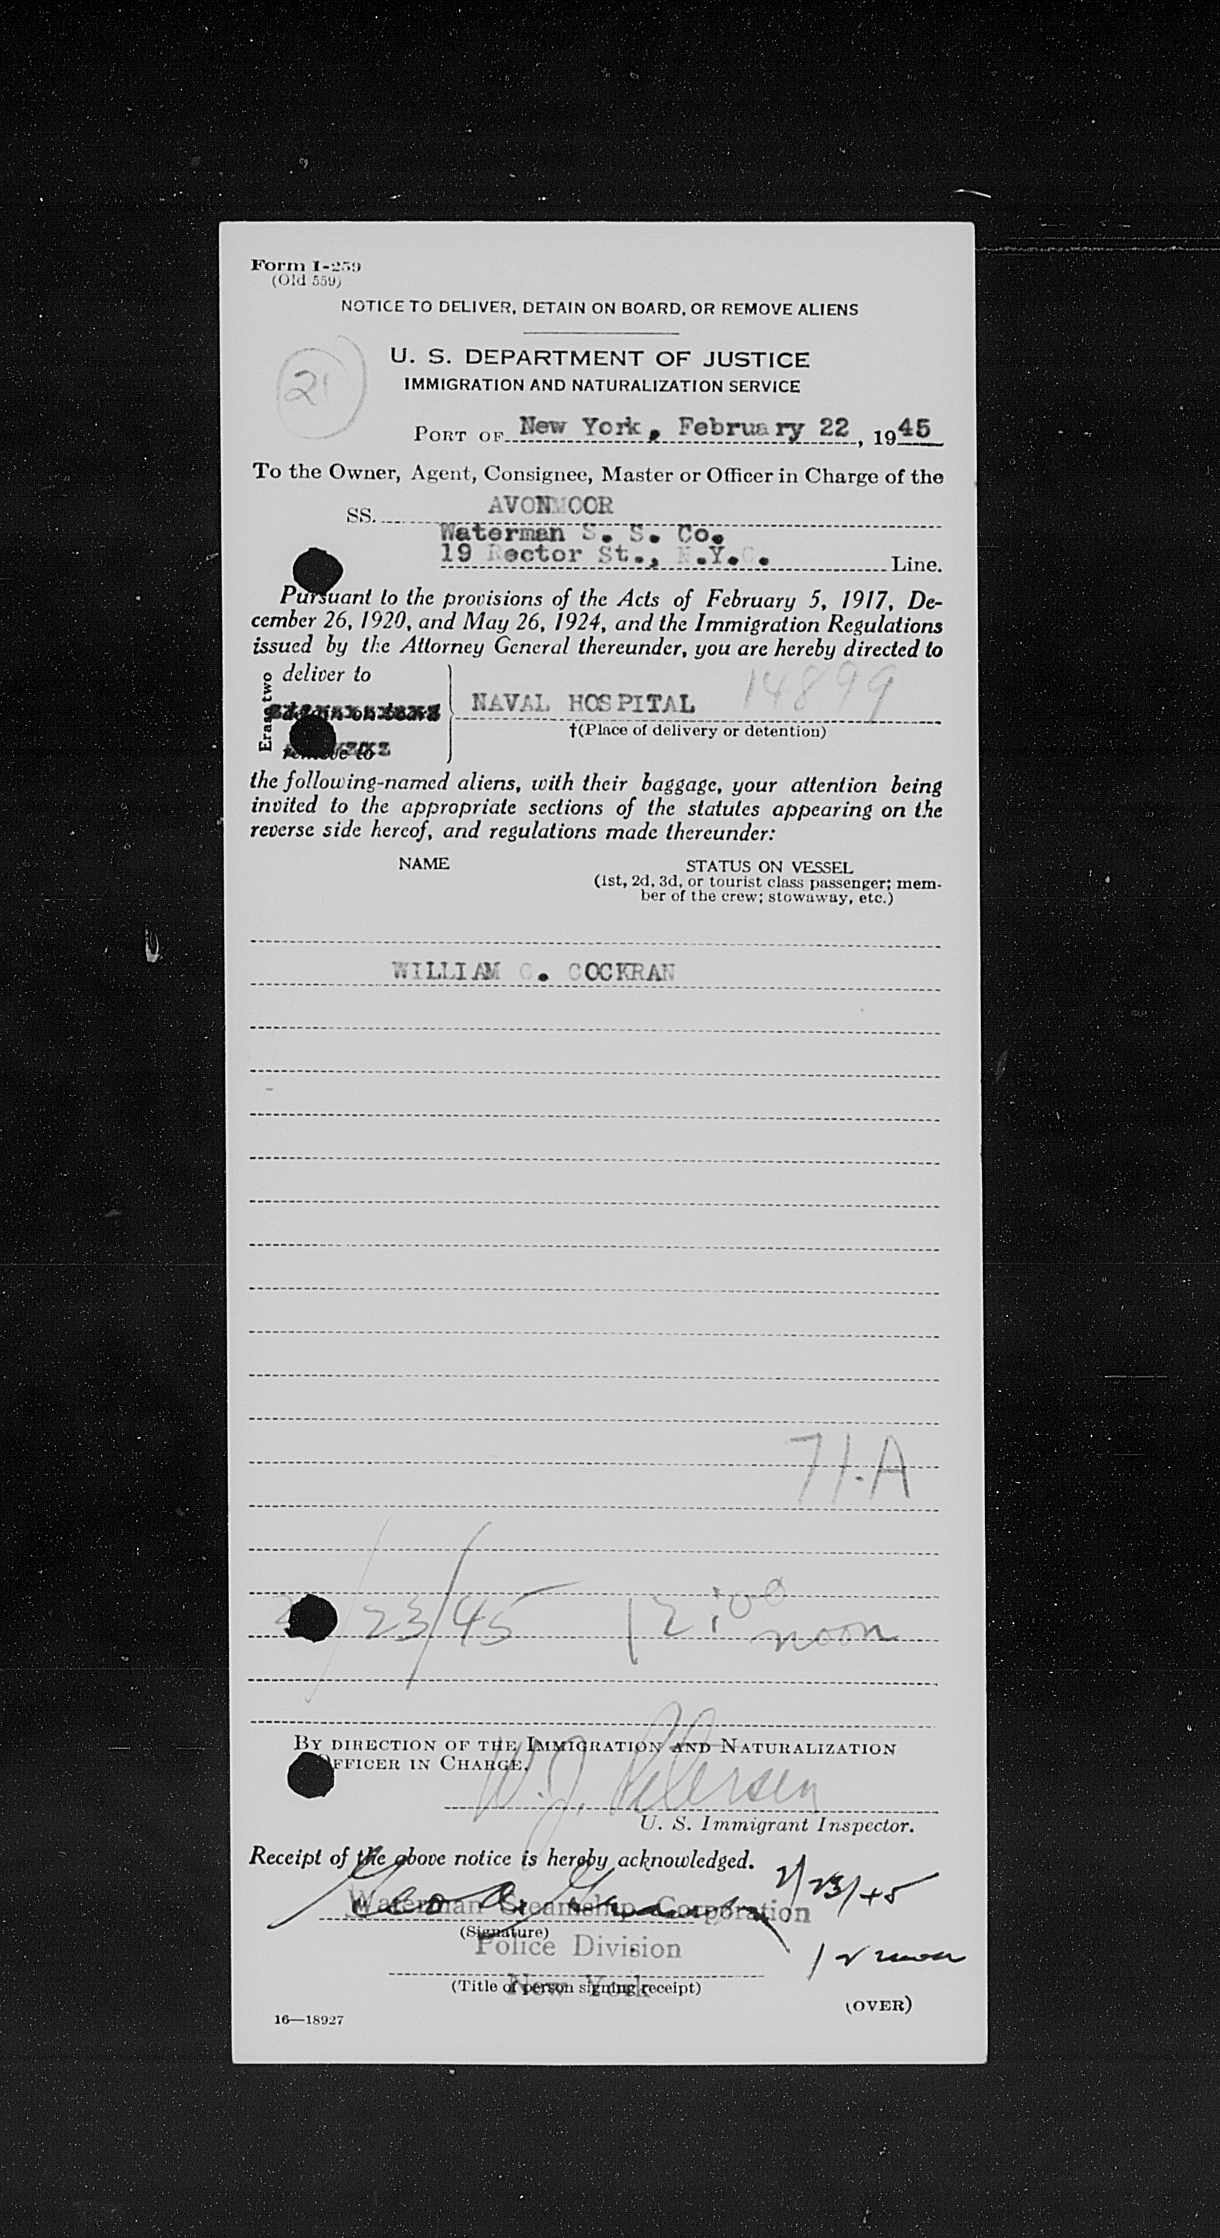 Form I-259
(Old 559)
NOTICE TO DELIVER, DETAIN ON BOARD, OR REMOVE ALIENS
U. S. DEPARTMENT OF JUSTICE
IMMIGRATION AND NATURALIZATION SERVICE
21
PORT OF New York, February 22, 1945
To the Owner, Agent, Consignee, Master or Officer in Charge of the
SS. AVONMOOR
Waterman S. S. Co.
19 Rector St., N.Y.C. Line.
Pursuant to the provisions of the Acts of February 5, 1917, De-
cember 26, 1920, and May 26, 1924, and the Immigration Regulations
issued by the Attorney General thereunder, you are hereby directed to
Erase two
deliver to
detain on board
remove to
NAVAL HOSPITAL 14899
†(Place of delivery or detention)
the following-named aliens, with their baggage, your attention being
invited to the appropriate sections of the statutes appearing on the
reverse side hereof, and regulations made thereunder:
NAME STATUS ON VESSEL
(1st, 2d, 3d, or tourist class passenger; mem-
ber of the crew; stowaway, etc.)
WILLIAM C. COCKRAN
71.A
2/23/45 12:00
noon
BY DIRECTION OF THE IMMIGRATION AND NATURALIZATION
OFFICER IN CHARGE.
W. J. Petersen
U. S. Immigrant Inspector.
Receipt of the above notice is hereby acknowledged.
2/23/45
Waterman Steamship Corporation
(Signature)
Police Division
12 noon
New York
(Title of person signing receipt)
(OVER)
16—18927